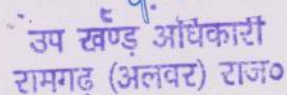 उप खण्ड़ अधिकारी
रामगढ़ (अलवर) राज०